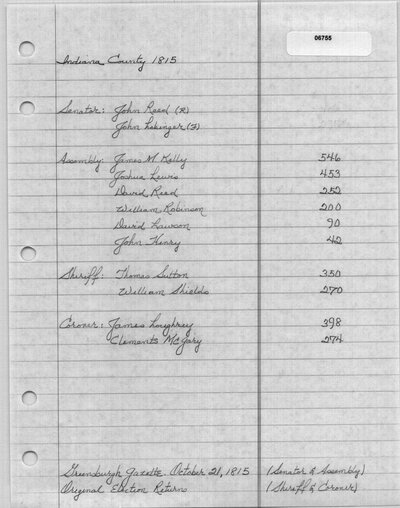 06755
Indiana County 1815
Senator: John Reed (R)
John Lobinger (F)
Assembly: James M. Kelly 546
Joshua Lewis 453
David Reed 252
William Robinson 200
David Lawson 90
John Henry 42
Sheriff: Thomas Sutton 350
William Shields 270
Coroner: James Loughrey 398
Clements McGary 274
Greensburgh Gazette. October 21, 1815 (Senator & Assembly)
Original Election Returns (Sheriff & Coroner)